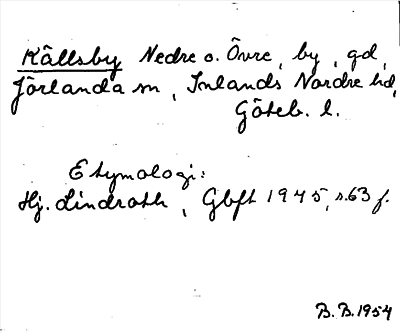 Källsby Nedre o. Övre, by, gd,
Jörlanda sn, Inlands Nordre hd,
Göteb. l.
Etymologi:
Hj. Lindroth, Gbft 1945, s.63 f.
B. B. 1954